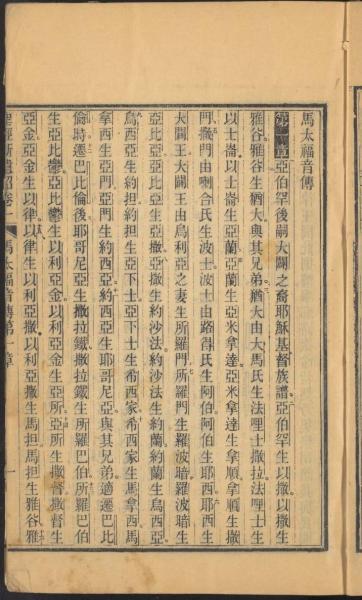 馬太福音傳
第一章亞伯罕後嗣大闢之裔耶穌基督族譜亞伯罕生以撒以撒生
雅谷雅谷生猶大與其兄弟猶大由大馬氏生法哩士撒拉法哩士生
以士崙以士崙生亞蘭亞蘭生亞米拿達亞米拿達生拿順拿順生撒
門撒門由喇合氏生波士波士由路得氏生阿伯阿伯生耶西耶西生
大闢王大闢王由烏利亞之妻生所羅門所羅門生羅波暗羅波暗生
亞比亞亞比亞生亞撒亞撒生約沙法約沙法生約蘭約蘭生烏西亞
烏西亞生約担約担生亞下士亞下士生希西家希西家生馬拿西馬
拿西生亞門亞門生約西亞約西亞生耶哥尼亞與其兄弟適遷巴比
倫時遷巴比倫後耶哥尼亞生撒拉鐵撒拉鐵生所羅巴伯所羅巴伯
生亞比鬱亞比鬱生以利亞金以利亞金生亞所亞所生撒督撒督生
亞金亞金生以律以律生以利亞撒以利亞撒生馬担馬担生雅谷雅
聖經新遺詔卷一 馬太福音傳第一章 一